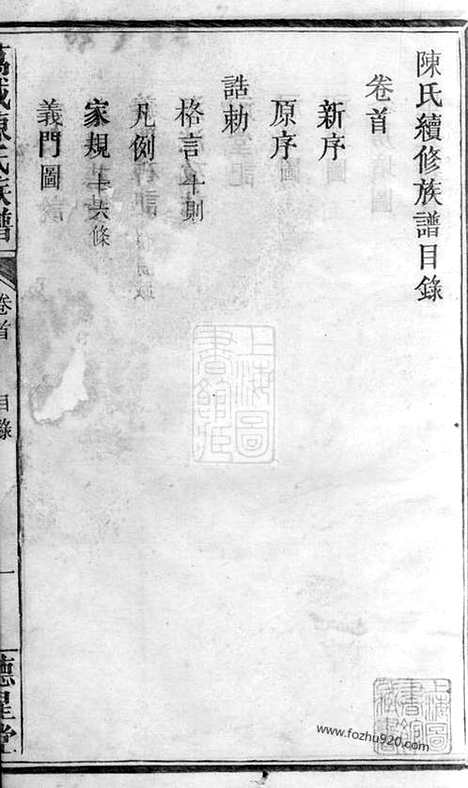 陳氏續修族譜目錄
卷首
新序
原序
誥勅
格言十則
凡例
家規十六條
義門圖
萬載陳氏族譜
卷首
目錄
一
德星堂
上海圖書館藏
上海圖書館藏書
www.fozhu920.com